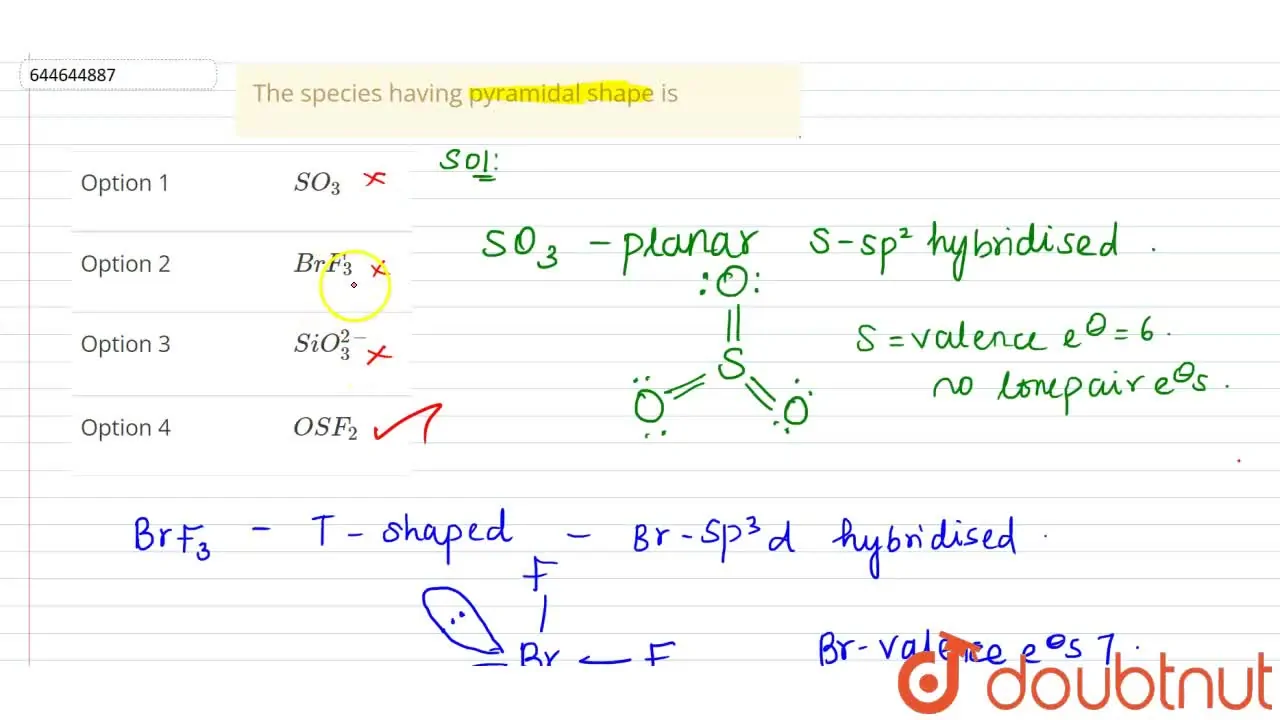 644644887
The species having pyramidal shape is
Option 1 SO₃ ×
Option 2 BrF₃ ×
Option 3 SiO₃²⁻ ×
Option 4 OSF₂ ✓
Sol:
SO₃ - planar S-sp² hybridised .
:O:
S
O O
S = valence e⊖ = 6 .
no lonepair e⊖s .
BrF₃ - T-shaped - Br-sp³d hybridised .
F
Br — F
Br-valence e⊖s 7 .
doubtnut